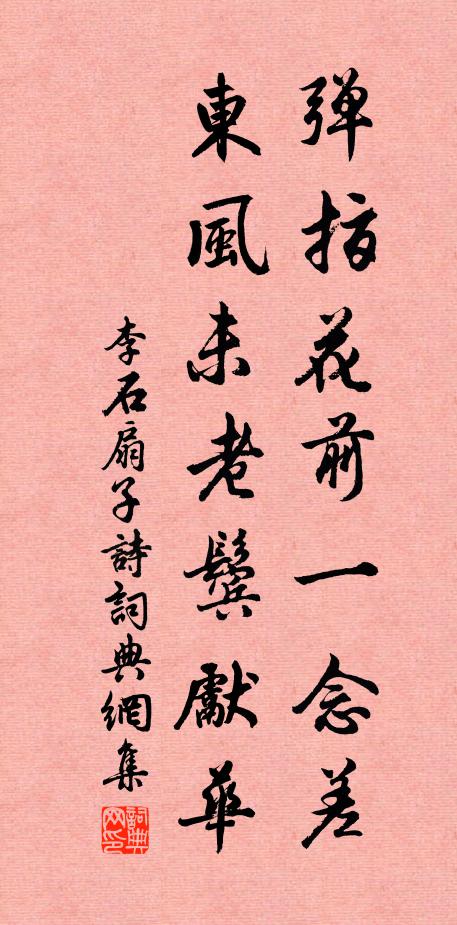 弹指花前一念差
東風未老鬢獻華
李石扇子詩詞典網集
詞典网印